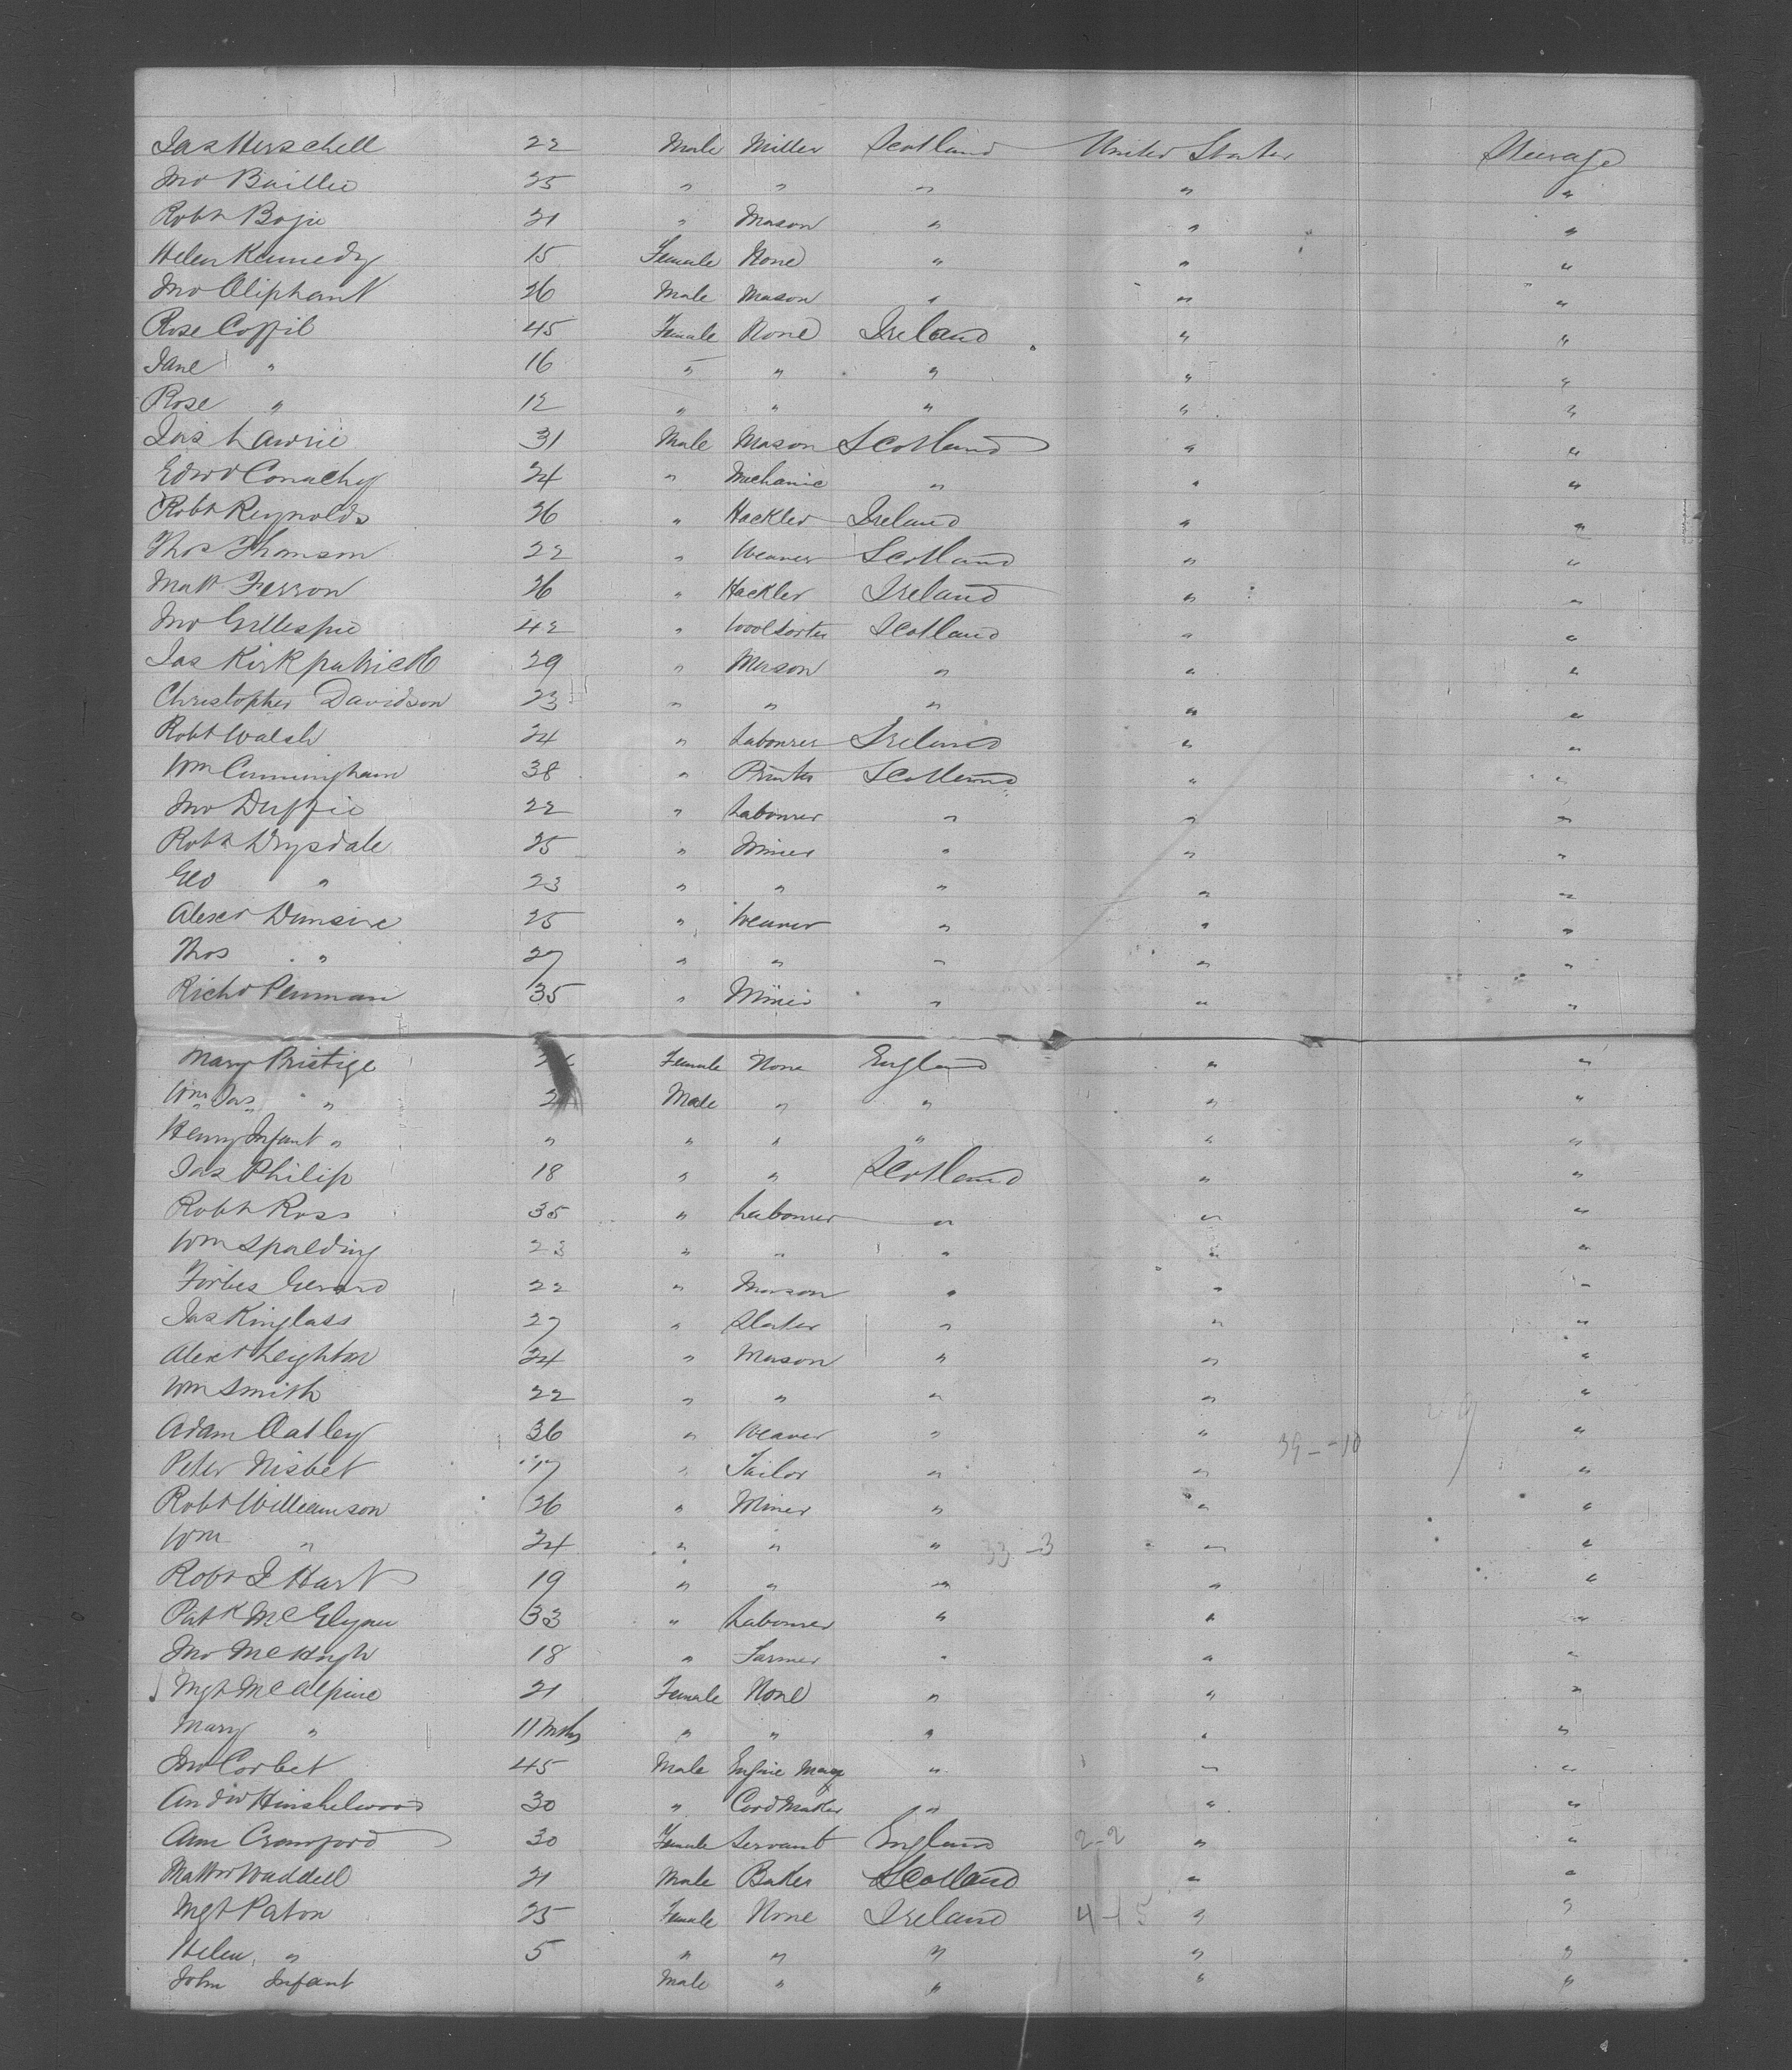 Jas Herschell 22 Male Miller Scotland United States Steerage
Jno Baillie 25 " " " " "
Robt Bogie 21 " Mason " " "
Helen Kennedy 15 Female None " " "
Jno Oliphant 26 Male Mason " " "
Rose Coffil 45 Female None Ireland " "
Jane " 16 " " " " "
Rose " 12 " " " " "
Jas Lawrie 31 Male Mason Scotland " "
Edwd Conachy 24 " Mechanic " " "
Robt Reynolds 26 " Hackler Ireland " "
Thos Thomson 22 " Weaver Scotland " "
Matt Ferron 26 " Hackler Ireland " "
Jno Gillespie 42 " Wool Sorter Scotland " "
Jas Kirkpatrick 29 " Mason " " "
Christopher Davidson 23 " " " " "
Robt Walsh 24 " Labourer Ireland " "
Wm Cunningham 38 " Printer Scotland " "
Jno Duffie 22 " Labourer " " "
Robt Drysdale 25 " Miner " " "
Geo " 23 " " " " "
Alexr Dunsire 25 " Weaver " " "
Thos " 27 " " " " "
Richd Penman 35 " Miner " " "
Mary Pristige Female None England " "
Wm Jas " 2 Male " " " "
Henry Infant " " " " " " "
Jas Philip 18 " " Scotland " "
Robt Ross 35 " Labourer " " "
Wm Spalding 23 " " " " "
Forbes Gerard 22 " Mason " " "
Jas Kinglass 27 " Slater " " "
Alexr Leighton 24 " Mason " " "
Wm Smith 22 " " " " "
Adam Oatley 36 " Weaver " " 39 - 10 "
Peter Nisbet 17 " Tailor " " "
Robt Williamson 26 " Miner " " "
Wm " 24 " " " 33 - 3 " "
Robt J Hart 19 " " " " "
Patk McGlynn 33 " Labourer " " "
Jno McHugh 18 " Farmer " " "
Mgt McAlpine 21 Female None " " "
Mary " 11 Mths " " " " "
Jno Corbet 45 Male Engine " " "
Andw Hinshelwood 30 " Cord Maker " " "
Ann Crawford 30 Female Servant England 2-2 " "
Matthw Waddell 21 Male Baker Scotland " "
Mgt Paton 25 Female None Ireland 4-15 " "
Helen " 5 " " " " "
John Infant Male " " " "